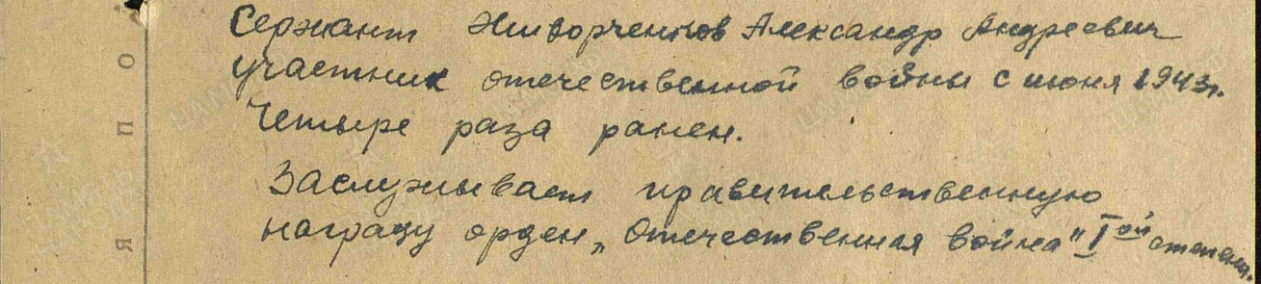 Сержант Живорченков Александр Андреевич
участник отечественной войны с июня 1943г.
Четыре раза ранен.
Заслуживает правительственную
награду орден „Отечественная война" I ой степени.